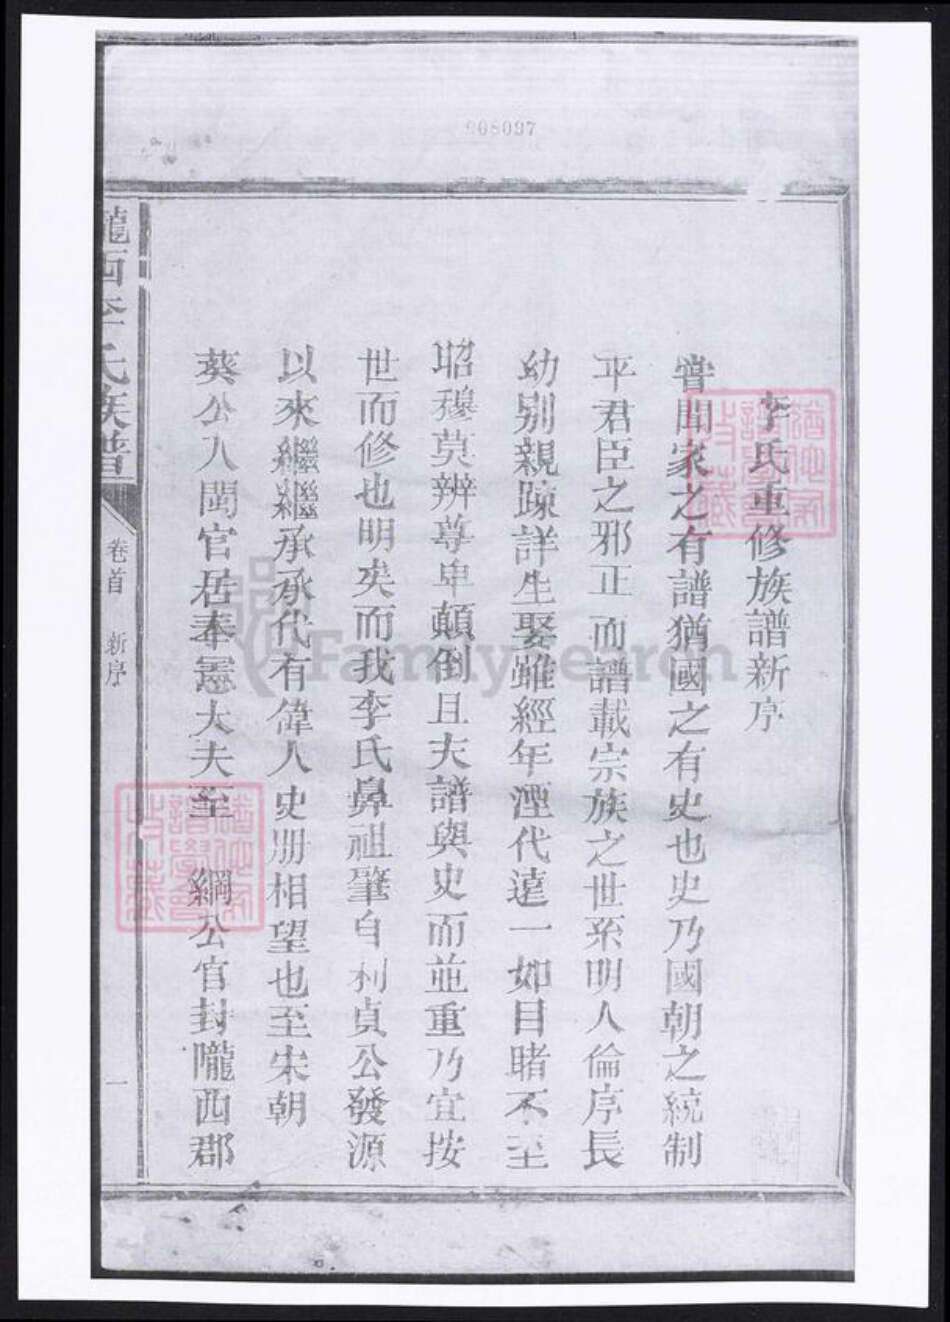 李氏重修族譜新序
嘗聞家之有譜猶國之有史也史乃國朝之統制
平君臣之邪正而譜載宗族之世系明人倫序長
幼别親疎詳生娶雖經年湮代遠一如目睹不至
昭穆莫辨尊卑顛倒且夫譜與史而並重乃宜按
世而修也明矣而我李氏鼻祖肇自利貞公發源
以來繼繼承承代有偉人史册相望也至宋朝
葵公入閩官居奉憲大夫至 綱公官封隴西郡
隴西李氏族譜
卷首 新序
一
FamilySearch